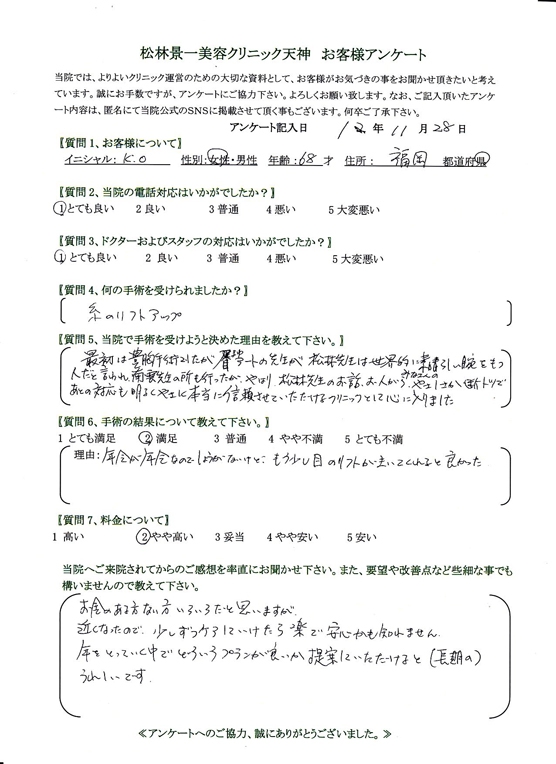 松林景一美容クリニック天神　お客様アンケート
当院では、よりよいクリニック運営のための大切な資料として、お客様がお気づきの事をお聞かせ頂きたいと考え
ています。誠にお手数ですが、アンケートにご協力下さい。よろしくお願い致します。なお、ご記入頂いたアンケ
ート内容は、匿名にて当院公式のSNSに掲載させて頂く事もございます。何卒ご了承下さい。
アンケート記入日　12年 11月 28日
〖質問1、お客様について〗
イニシャル: K.O　性別:女性・男性　年齢:68才　住所:　福岡　都道府県
〖質問2、当院の電話対応はいかがでしたか?〗
1とても良い　2良い　3普通　4悪い　5大変悪い
〖質問3、ドクターおよびスタッフの対応はいかがでしたか?〗
1とても良い　2 良い　3 普通　4悪い　5大変悪い
〖質問4、何の手術を受けられましたか?〗
糸のリフトアップ
〖質問5、当院で手術を受けようと決めた理由を教えて下さい。〗
最初は豊胸手術でしたが の先生が 松林先生は世界的に素晴らしい腕をもつ
人だと言われ 先生の所も行ったが、やはり、松林先生のお話、お人がら、みなさんの やさしさが断トツで
あとの対応も明るくやさしく本当に信頼させていただけるクリニックとして心に入りました
〖質問6、手術の結果について教えて下さい。〗
1 とても満足　2 満足　3 普通　4 やや不満　5 とても不満
理由: 年令が年令なのでしょうがないけど、もう少し目のリフトが きいてくれると良かった
〖質問7、料金について〗
1 高い　2 やや高い　3 妥当　4 やや安い　5 安い
当院へご来院されてからのご感想を率直にお聞かせ下さい。また、要望や改善点など些細な事でも
構いませんので教えて下さい。
お金のある方ない方いろいろだと思いますが
近くなったので、少しずつケアしていけたら楽で安心かも知れません
年をとっていく中でどういうプランが良いか提案していただけると(長期の)
うれしいです。
≪アンケートへのご協力、誠にありがとうございました。≫